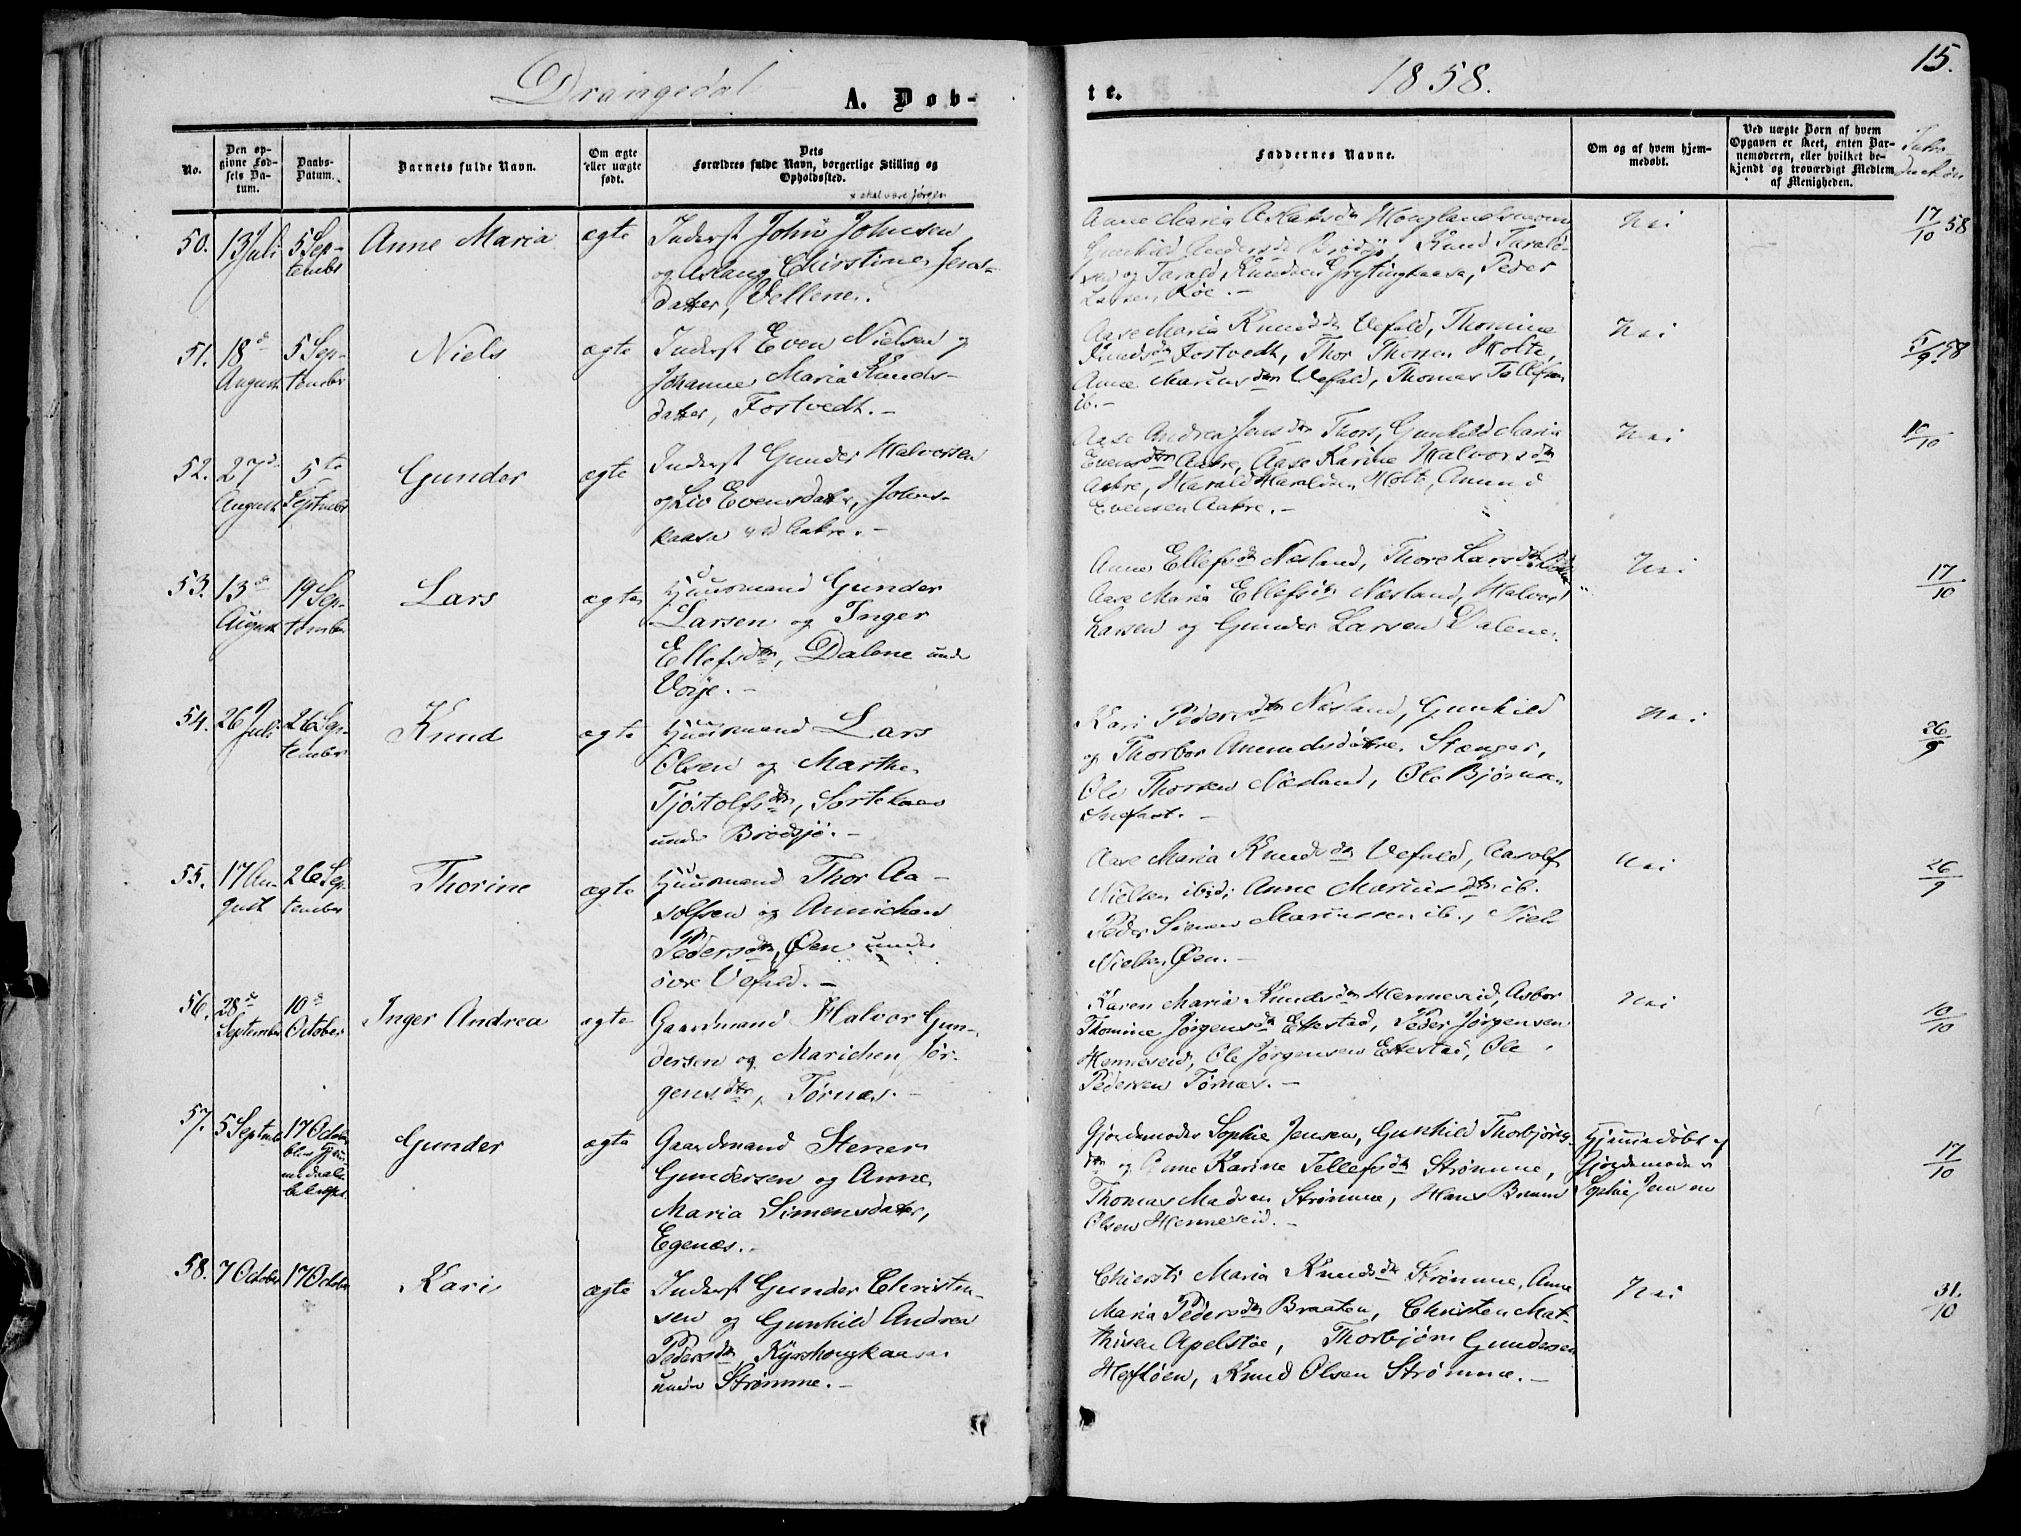 Drangedal
A. Døb-
te.
1858.
15.
No.
Den op-
givne Fød-
sels Da-
tum.
Daabs-
Datum.
Barnets fulde Navn.
Om ægte
eller uægte
født.
Dets
Forældres fulde Navn, borgerlige Stilling og
Opholdssted.
x skal være Jørgen
Faddernes Navne.
Om og af hvem hjem-
medøbt.
Ved uægte Børn af hvem
Opgaven er skeet, enten Bar-
nemoderen, eller hvilket be-
kjendt og troværdigt Medlem
af Menigheden.
50. 13 Juli 5 Sep-
tembr
Anne Maria
ægte
Inderst John Johnsen
og Aslaug Christine Jens-
datter, Vellene.
Anne Maria Aslaksdr
Gunhild Andersdr Brødsjø, Knud Tarald-
sen og Tarald Knudsen, Peder
Larsen, Roe. -
Nei
17/10 58
51. 18d
August
5 Sep-
tember
Niels
ægte
Inderst Even Nielsen og
Johanne Maria Knuds-
datter, Fostvedt. -
Aase Maria Knudsdr Vefald, Thomine
Knudsdr Fostvedt, Thor Thorsen Holte,
Anne Mariusdtr Vefald, Thomas Tellefsen
ib. -
Nei
5/9 58
52. 27d
August
5te
Septembr
Gunder
ægte
Inderst Gunder Halvorsen
og Liv Evensdatter, Johns-
kaasa ved Aakre. -
Aase Andrea Jensdtr Thors, Gunhild Maria
Evensdtr Aakre, Aase Karine Halvorsdr
Aakre, Harald Haraldsen Holte, Amund
Evensen Aakre. -
Nei
10/10
53. 13d
August
19 Sep-
tember
Lars
ægte
Huusmand Gunder
Larsen og Inger
Ellefsdtr, Dalene under
Voje. -
Anne Ellefsdr Næsland, Thore Larsdtr
Aase Maria Ellefsdr Næsland, Halvor
Larsen og Gunder Larsen Dalene.
Nei
17/10
54. 26 Juli
26 Sep-
tember
Knud
ægte
Huusmand Lars
Olsen og Marthe
Tjøstolfsdtr, Sortekaas
under Brødsjø. -
Kari Pedersdtr Næsland, Gunhild
og Thorbor Amundsdøtre Stænger,
Ole Thorsen Næsland, Ole Bjørnsen
Nei
26/9
55. 17 Au-
gust
26 Sep-
tember
Thorine
ægte
Huusmand Thor Aa-
solfsen og Annichen
Pedersdr, Øen under
øvre Vefald. -
Aase Maria Knudsdr Vefald, Aasolf
Nielsen ibid; Anne Mariusdtr ib.
Peder Simon Mariussen ib., Niels
Nielsen Øen. -
Nei
26/9
56. 28d
September
10d
October
Inger Andrea
ægte
Gaardmand Halvor Gun-
dersen og Marichen Jør-
gensdtr, Tørnæs. -
Karen Maria Knudsdr Henneseid, Asbor
Thomine Jørgensdr Ettestad, Peder Jørgensen
Henneseid, Ole Jørgensen Ettestad, Ole
Pedersen Tørnæs. -
Nei
10/10
57. 5 Septemb
17 October
Gunder
ægte
Gaardmand Stener
Gundersen og Anne
Maria Simensdatter,
Egenæs. -
Gjordemoder Sophie Jensen, Gunhild Thorbjørns-
dtr og Anne Karine Tellefsdr Strømme,
Thomas Madsen Strømme, Hans Bruun
Olsen Henneseid. -
Hjemmedøbt af
Gjordemoder
Sophie Jensen
17/10
58. 7 October
17 October
Kari
ægte
Inderst Gunder Christen-
sen og Gunhild Andrea
Pedersdr, Kyrshougkaasa
under Strømme. -
Chiersti Maria Knudsdr Strømme, Anne
Maria Pedersdr Braaten, Christen Mat-
thisen Apelstøe, Thorbjørn Gundersen
Hefløen, Knud Olsen Strømme. -
Nei
31/10